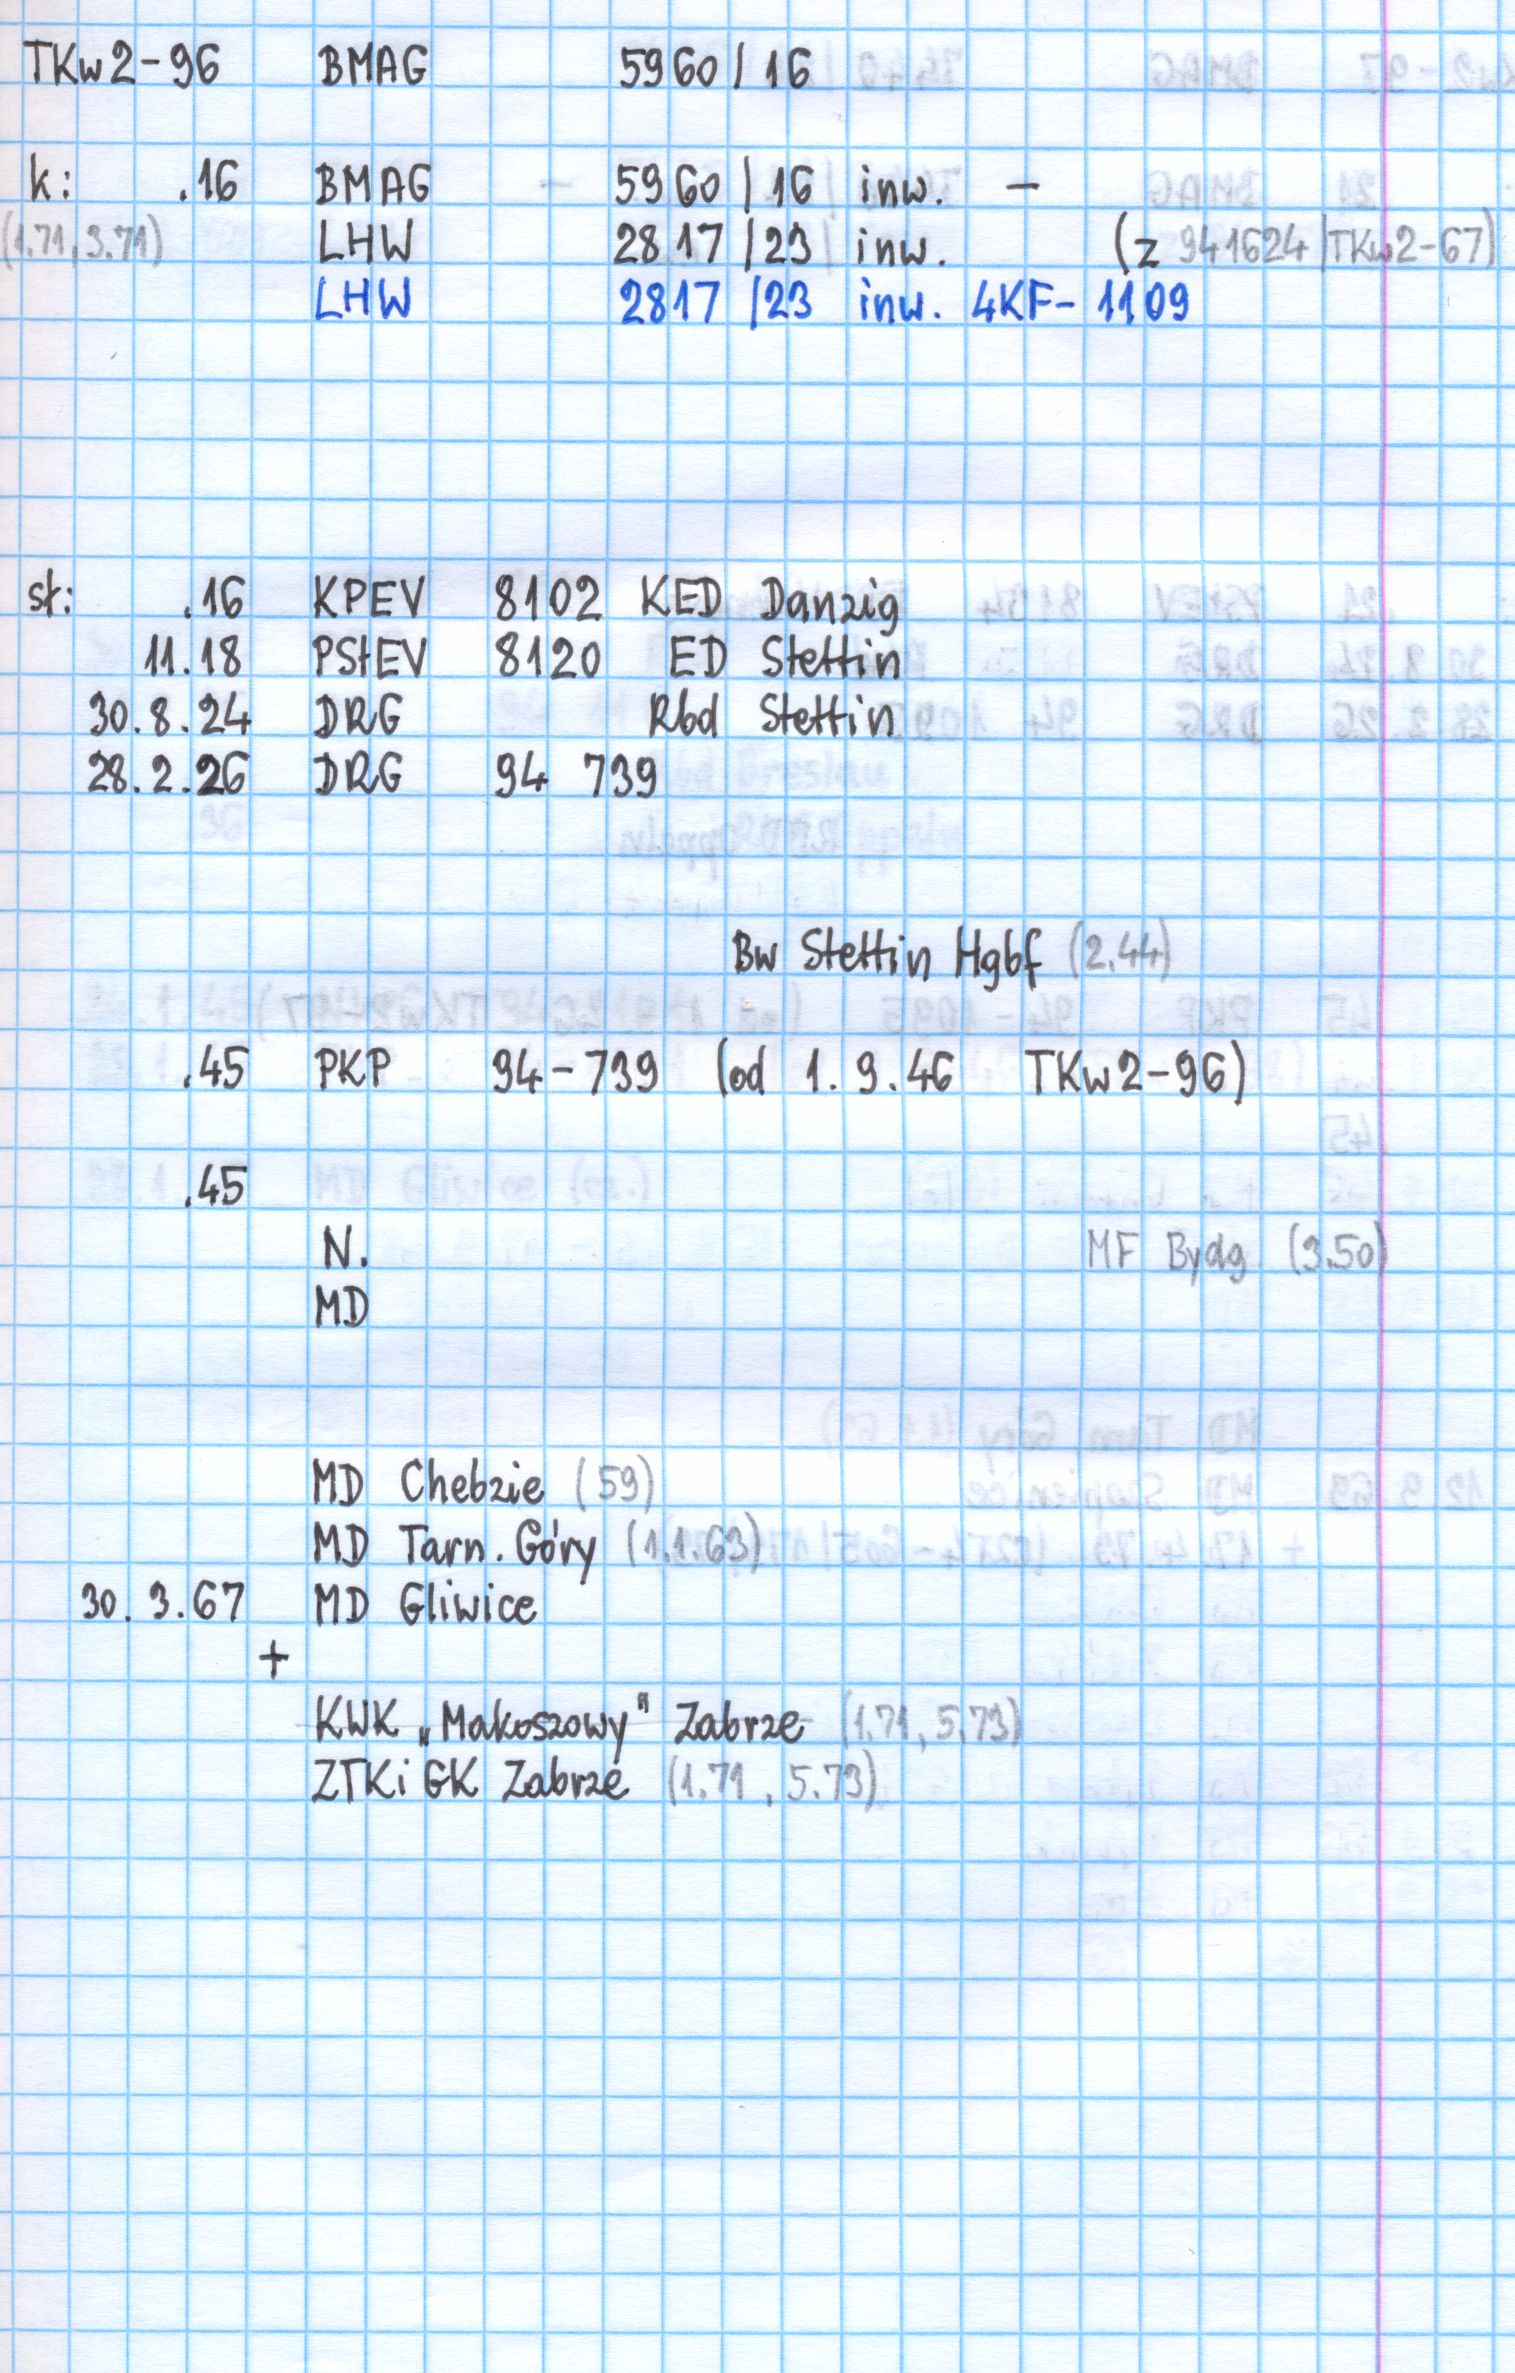 TKw2-96 BMAG 5960/16
k: .16 BMAG 5960/16 inw. -
(1.71, 3.71) LHW 2817/23 inw. (z 941624/TKw2-67)
LHW 2817/23 inw. 4KF-1109
st: .16 KPEV 8102 KED Danzig
11.18 PStEV 8120 ED Stettin
30.8.24 DRG Rbd Stettin
28.2.26 DRG 94 739
Bw Stettin Hgbf (2.44)
.45 PKP 94-739 (od 1.9.46 TKw2-96)
.45
N. MF Bydg (3.50)
MD
MD Chebzie (59)
MD Tarn. Góry (1.1.63)
30.3.67 MD Gliwice
+
KWK „Makoszowy" Zabrze (1.71, 5.73)
ZTKiGK Zabrze (1.71, 5.73)